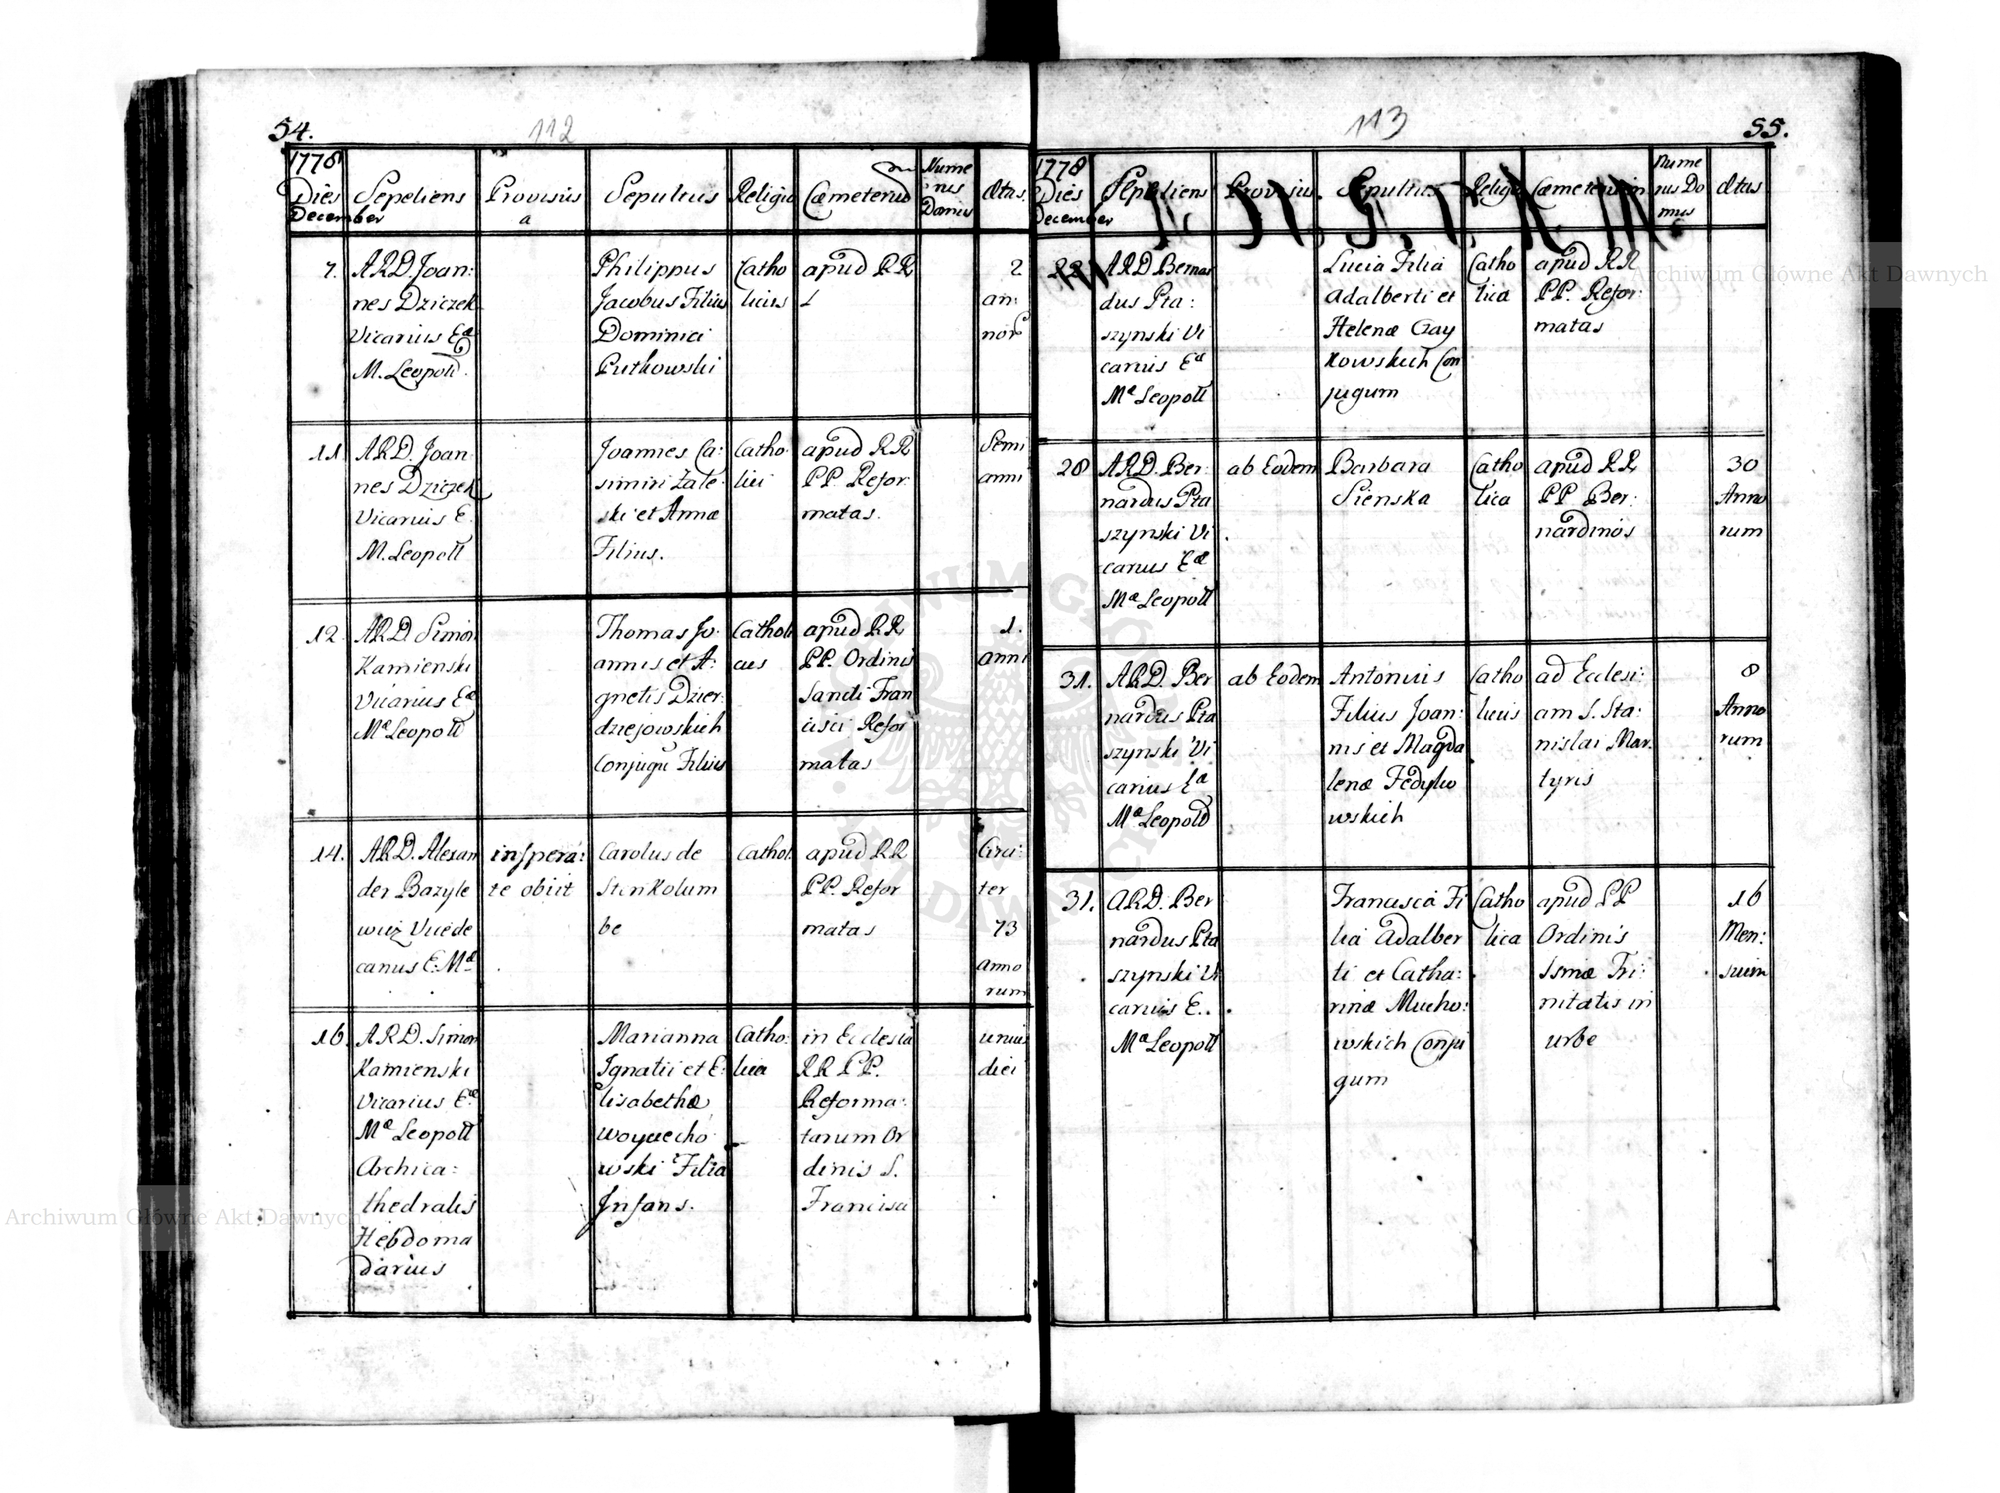 54.
112
1778
Dies
December
Sepeliens
Provisus
a
Sepultus
Religio
Cæmeterium
Nume
rus
Domus
Ætas.
7.
ARD. Joan:
nes Dziczek
Vicarius Eæ
M. Leopold.
Philippus
Jacobus Filius
Dominici
Putkowski
Catho
licus
apud RR
2
an:
nor
11.
ARD. Joan
nes Dziczek
Vicarius E.
M. Leopoll
Joannes Ca:
simiri Zale
ski et Annæ
Filius.
Catho
lici
apud RR
PP. Refor
matas.
Semi
anni
12.
ARD Simon
Kamienski
Vicarius Eæ
Mæ Leopold
Thomas Jo:
annis et A:
gnetis Dzier:
dziejowskich
Conjugu Filius
Catholi
cus
apud RR
PP. Ordinis
Sancti Fran
cisci Refor
matas
1.
anni
14.
ARD. Alexan
der Bazyle
wicz Vicede
canus E. Mæ
insperá:
te obiit
Carolus de
Stenkolum
be
Cathol.
apud RR
PP. Refor
matas
Circi:
ter
73
anno
rum
16.
ARD. Simon
Kamienski
Vicarius Eæ
Mæ Leopoll
Archica:
thedralis
Hebdoma
darius
Marianna
Ignatii et E:
lisabethæ
Woyciecho
wski Filia
Infans.
Catho:
lica
in Ecclesia
RR PP.
Reforma:
tarum Or
dinis S.
Francisci
unius
diei
113
55.
1778
Dies
December
Sepeliens
Provisus.
Sepultus
Religio
Cæmeterium
nume
rus Do
mus
Ætas
ARD Bernar
dus Pta:
szynski Vi
carius Eæ
Mæ Leopoll
Lucia Filia
Adalberti et
Helenæ Czay
kowskich Con
jugum
Catho
lica
apud RR
PP. Refor:
matas
28
ARD. Ber:
nardus Pta
szynski Vi
carius Eæ
Mæ Leopoll
ab Eodem
Barbara
Sienska
Catho
lica
apud RR
PP Ber:
nardinos
30
Anno
rum
31.
ARD. Ber
nardus Pta
szynski Vi
carius Eæ
Mæ Leopold
ab Eodem
Antonius
Filius Joan:
nis et Magda
lenæ Fedyko
wskich
Catho
licus
ad Ecclesi:
am S. Sta:
nislai Mar:
tyris
8
Anno
rum
31.
ARD. Ber
nardus Pta
szynski Vi
carius E..
Mæ Leopoll
Francisca Fi
lia Adalber
ti et Catha:
rinæ Mucho:
wskich Conju
gum
Catho
lica
apud PP
Ordinis
Ssmæ Tri:
nitatis in
urbe
16
Men:
sium
Archiwum Główne Akt Dawnych
Archiwum Główne Akt Dawnych